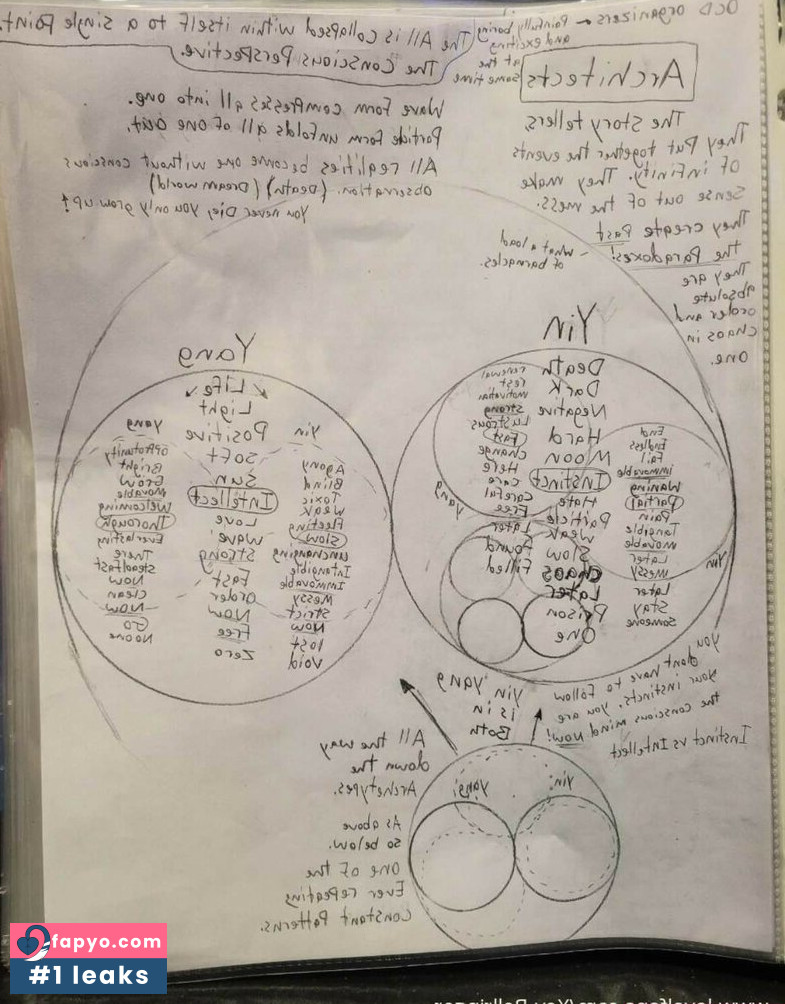 OCD organizers - Painfully boring
and exciting
at the
same time
Architects
The All is collapsed within itself to a single Point.
The Conscious Perspective.
The Story tellers,
They Put together the events
of infinity. They make
sense out of the mess.
They create Past
the Paradoxes!
They are
absolute
order and
chaos in
one.
Wave form compresses all into one.
Particle form unfolds all of one out.
All realities become one without conscious
observation. (Death) (Dream world)
You never Die, you only grow up!
- what a load
of barnacles.
Yin
Death
Dark
Negative
Hard
Moon
Instinct
Hate
Particle
weak
Slow
Chaos
Later
Prison
One
renewal
rest
motivation
strong
Lustrous
Fast
change
Here
care
careful
Free
Later
Found
Filled
yang
End
Endless
Fail
immovable
Waning
Partial
Pain
Tangible
movable
Later
messy
Later
Stay
Someone
Yin
Yang
Life
Light
Positive
Soft
Sun
Intellect
Love
wave
Strong
Fast
order
Now
Free
Zero
Yin
Agony
Blind
Toxic
weak
Fleeting
Slow
unchanging
Intangible
Immovable
Messy
Strict
Now
lost
Void
yang
opportunity
Bright
Grow
Movable
Welcoming
Thorough
Everlasting
There
Steadfast
Now
clean
Now
Go
No one
you
dont have to follow
your instincts, you are
the conscious mind now!
Instinct vs Intellect
yin yang
is in
Both
All the way
down the
Archetypes.
As above
so below.
One of the
Ever repeating
Constant Patterns.
yin
yang
fapyo.com
#1 leaks